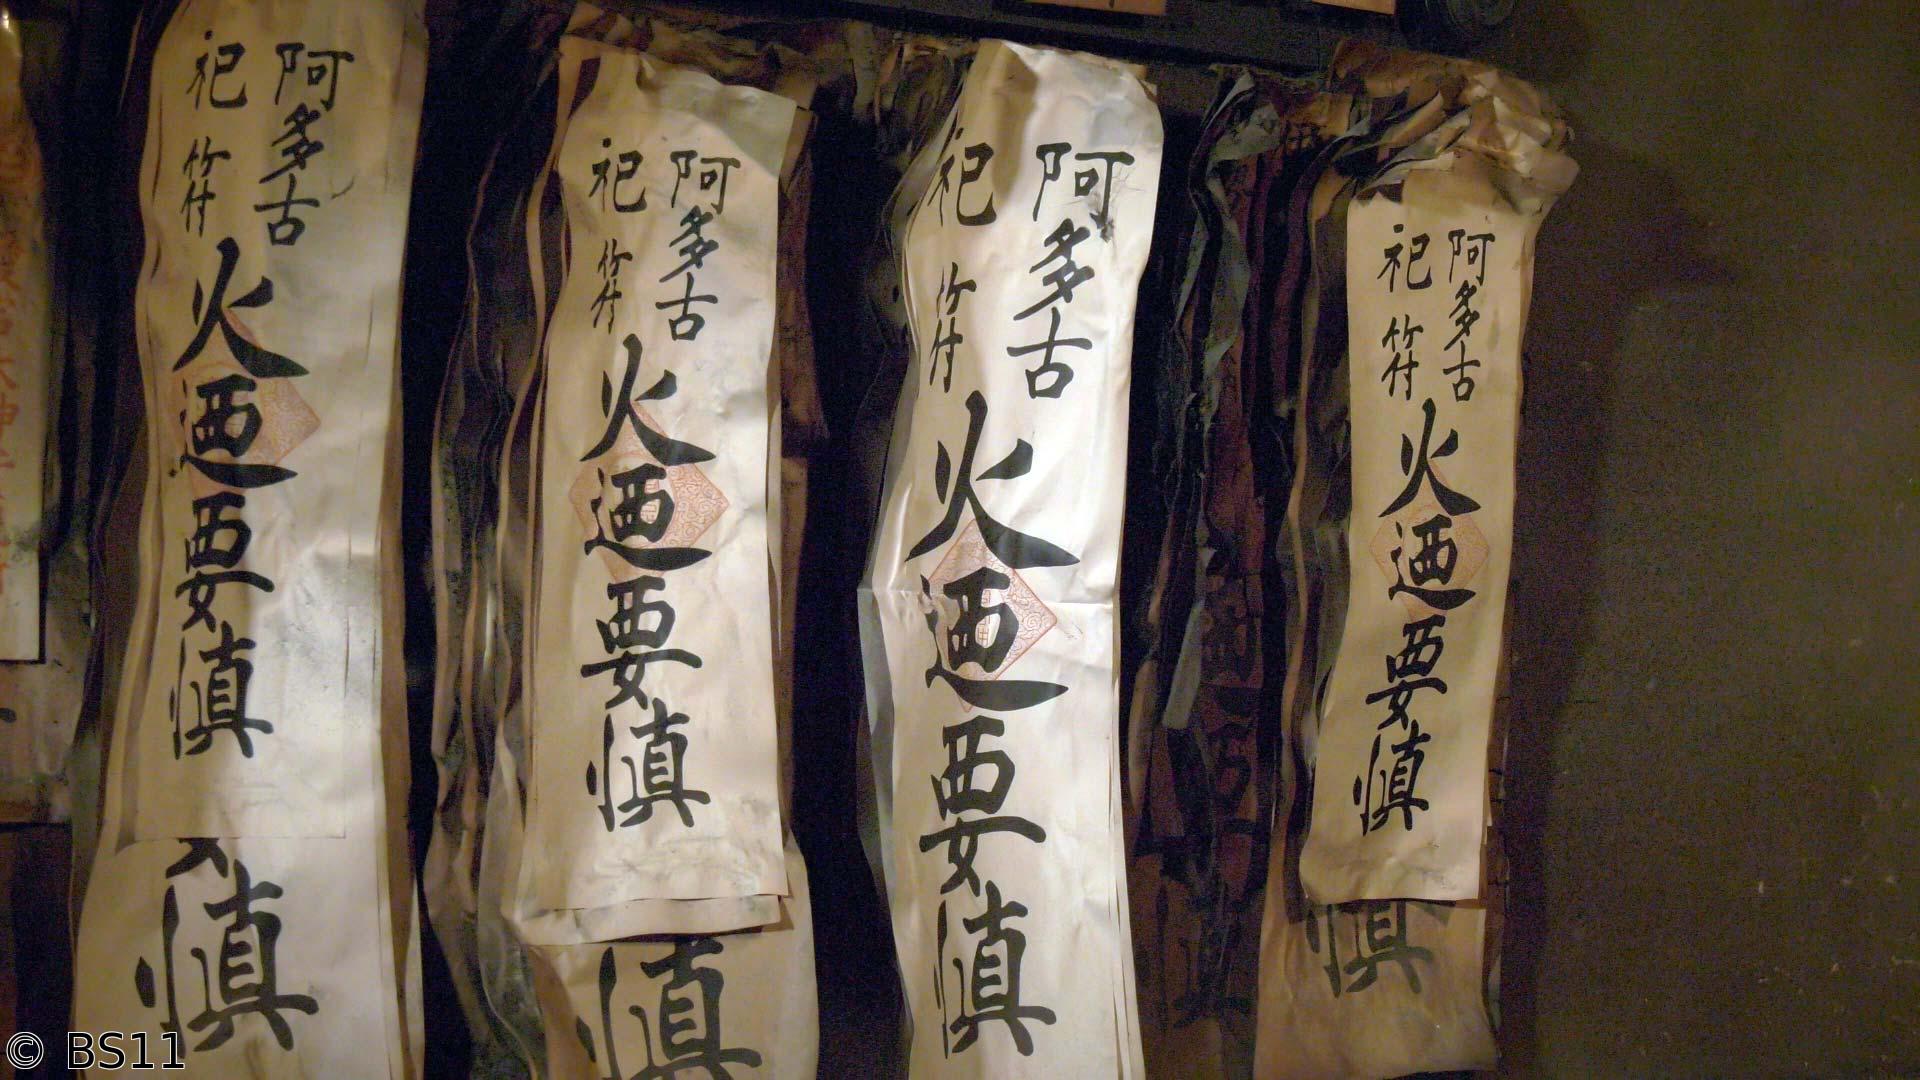 阿多古
祀符
火迺要慎
慎
阿多古
祀符
火迺要慎
阿多古
祀符
火迺要慎
慎
阿多古
祀符
火迺要慎
慎
© BS11